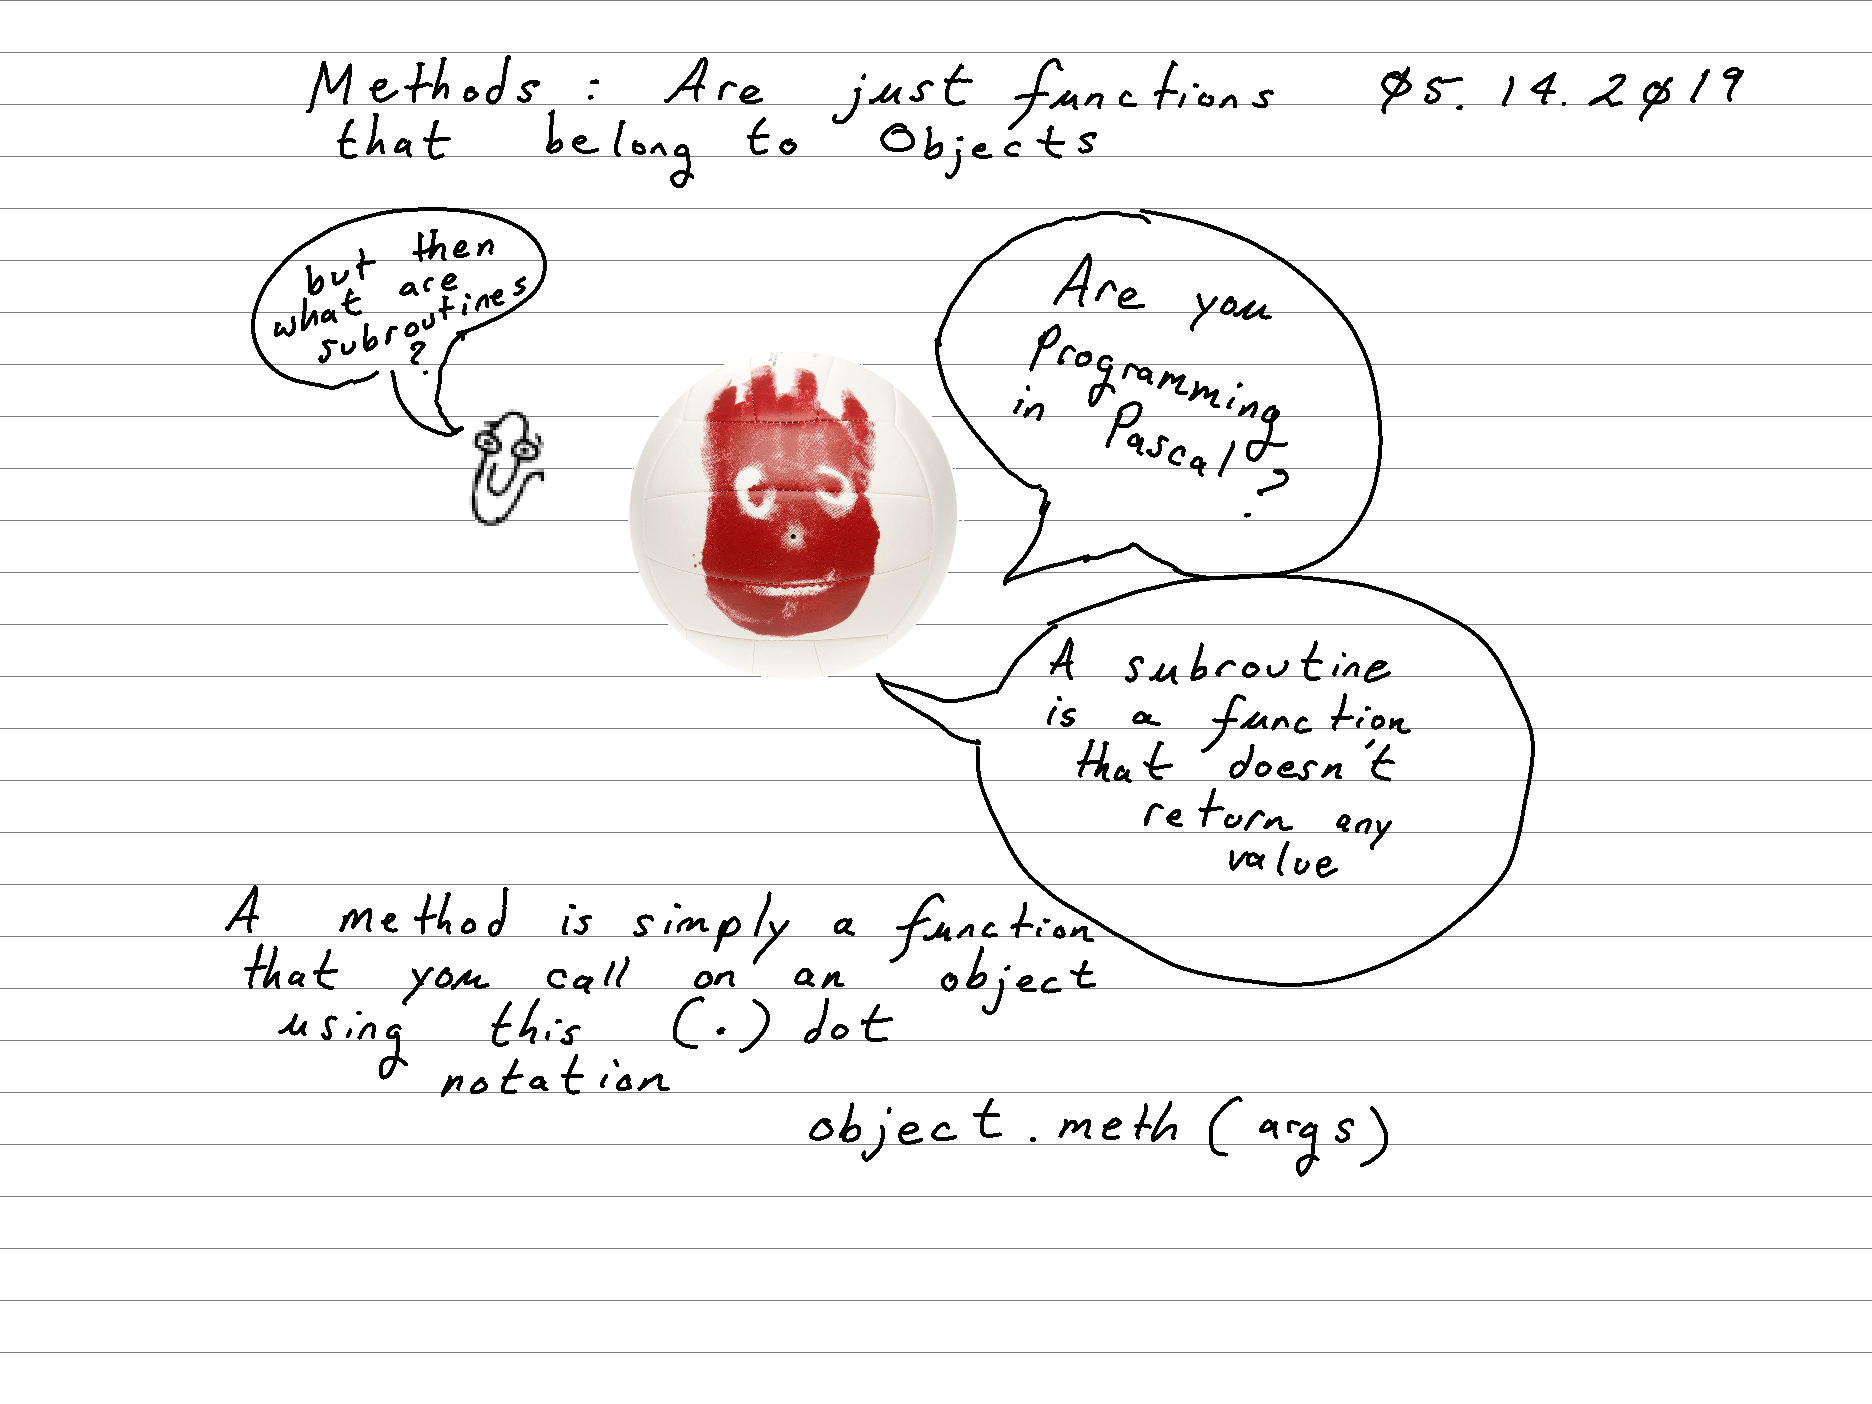 Methods : Are just functions ø5.14.2ø19
that belong to Objects
but then
what are
subroutines
?
Are you
Programming
in Pascal
?
A subroutine
is a function
that doesn't
return any
value
A method is simply a function
that you call on an object
using this (.) dot
notation
object.meth(args)